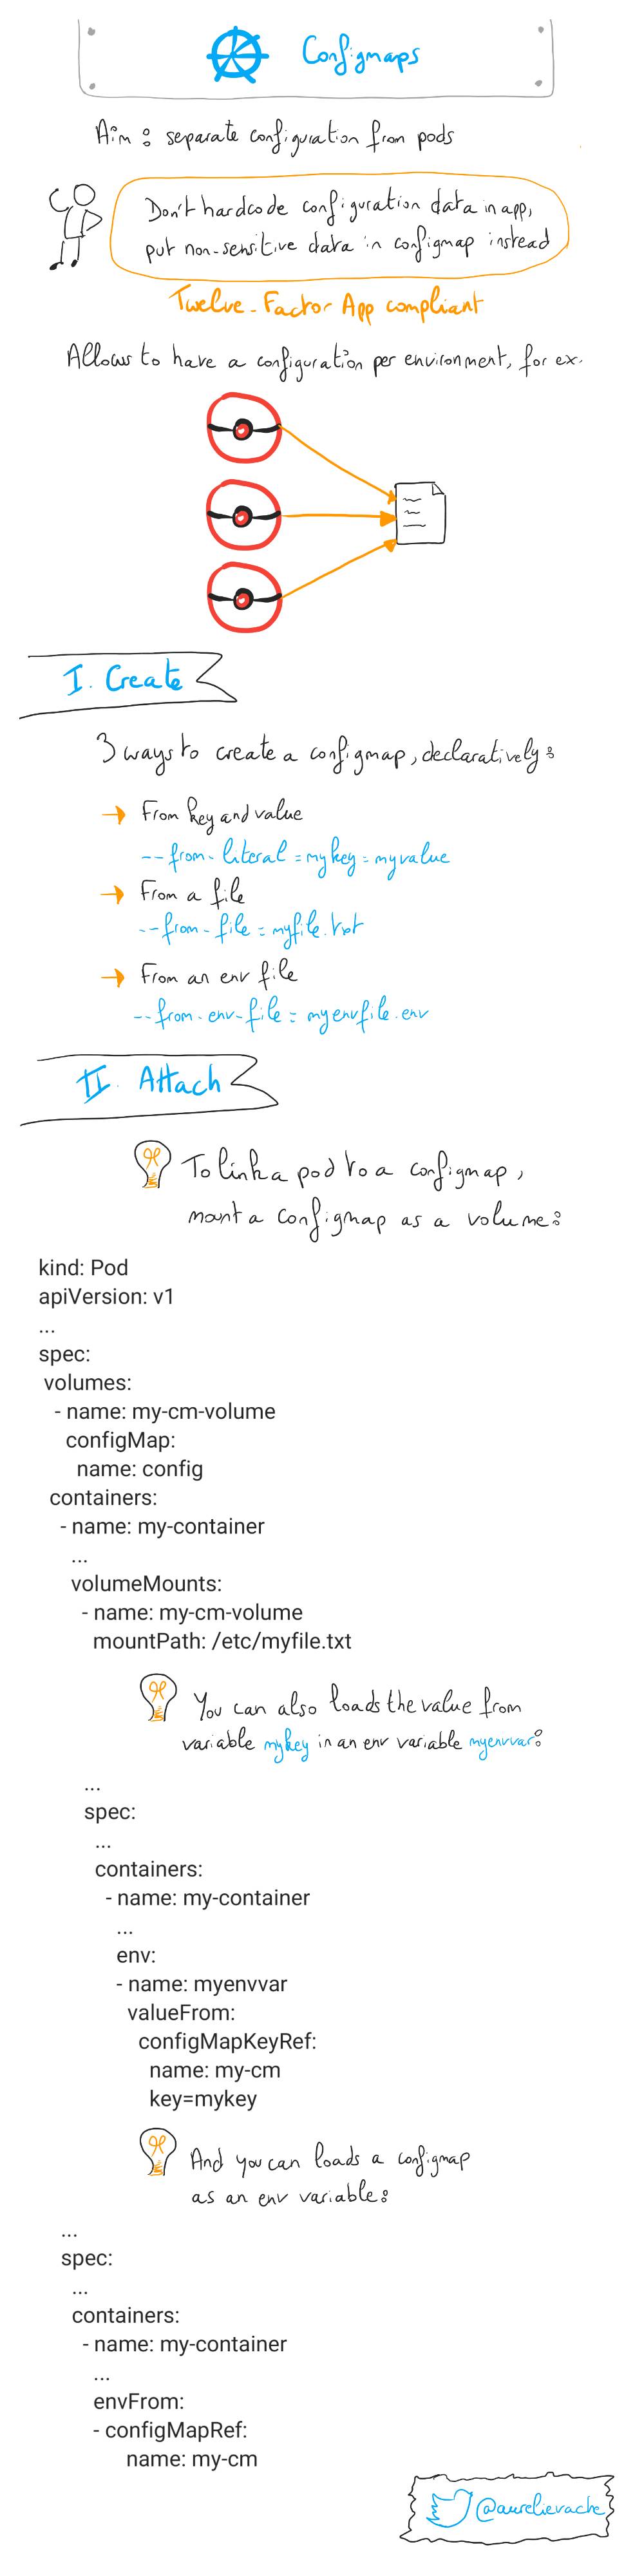 Configmaps
Aim : separate configuration from pods
Don't hardcode configuration data in app,
put non-sensitive data in configmap instead
Twelve-Factor App compliant
Allows to have a configuration per environment, for ex.
I. Create
3 ways to create a configmap, declaratively :
→ From key and value
--from-literal=mykey=myvalue
→ From a file
--from-file=myfile.txt
→ From an env file
--from-env-file=myenvfile.env
II. Attach
To link a pod to a configmap,
mount a configmap as a volume :
kind: Pod
apiVersion: v1
...
spec:
volumes:
- name: my-cm-volume
configMap:
name: config
containers:
- name: my-container
...
volumeMounts:
- name: my-cm-volume
mountPath: /etc/myfile.txt
You can also loads the value from
variable mykey in an env variable myenvvar :
...
spec:
...
containers:
- name: my-container
...
env:
- name: myenvvar
valueFrom:
configMapKeyRef:
name: my-cm
key=mykey
And you can loads a configmap
as an env variable :
...
spec:
...
containers:
- name: my-container
...
envFrom:
- configMapRef:
name: my-cm
@aurelievache